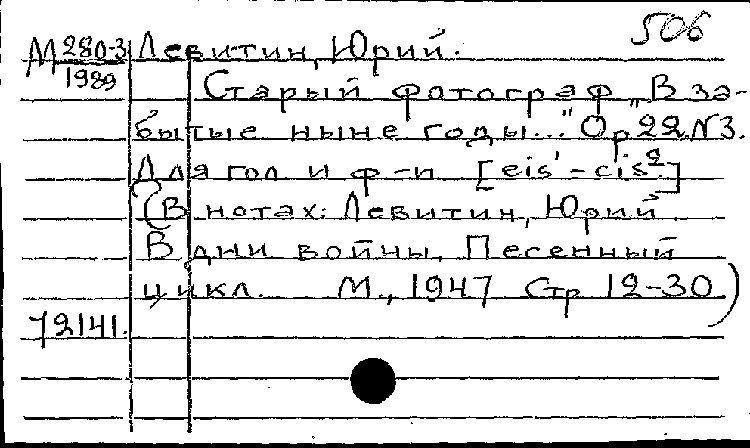 506
М 280-3 Левитин, Юрий.
1989
Старый фотограф „В за-
бытые ныне годы..." Op 22 N 3.
Для гол и ф-п [eis¹-cis²]
(В нотах: Левитин, Юрий
В дни войны. Песенный
цикл. М., 1947 Стр 12-30)
72141.